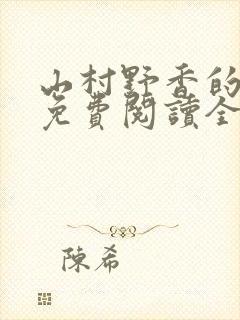 山村野香的
免費閱讀全
陳希